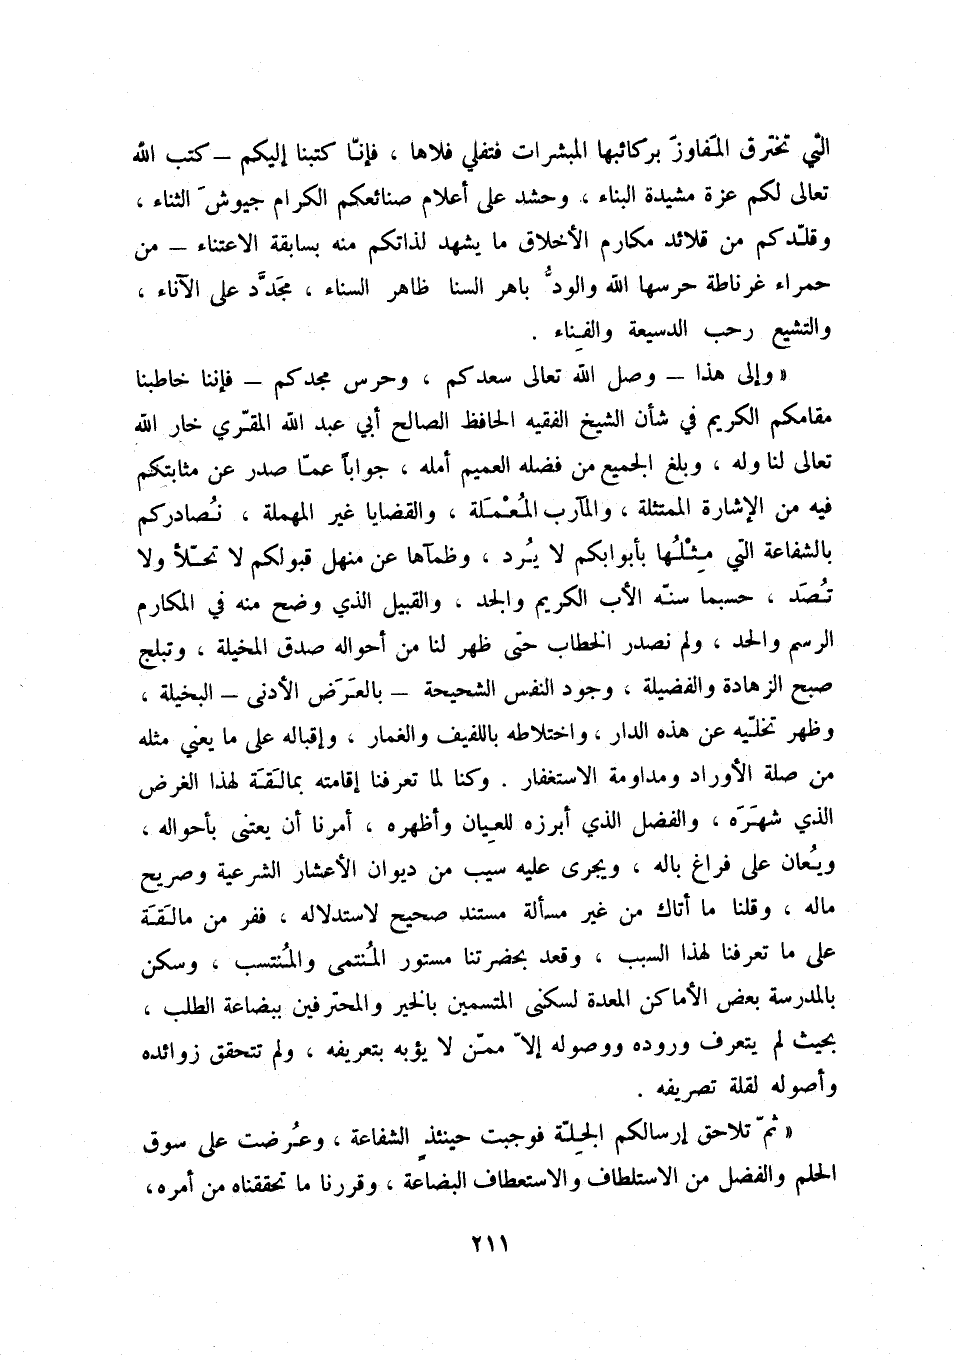 التي تخترق المفاوزَ بركائبها المبشرات فتفلي فلاها ، فإنّا كتبنا إليكم – كتب الله
تعالى لكم عزة مشيدة البناء ، وحشد على أعلام صنائعكم الكرام جيوشَ الثناء ،
وقلّدكم من قلائد مكارم الأخلاق ما يشهد لذاتكم منه بسابقة الاعتناء – من
حمراء غرناطة حرسها الله والودُّ باهر السنا ظاهر السناء ، مجَدَّد على الآناء ،
والتشيع رحب الدسيعة والفِناء .
« وإلى هذا – وصل الله تعالى سعدكم ، وحرس مجدكم – فإننا خاطبنا
مقامكم الكريم في شأن الشيخ الفقيه الحافظ الصالح أبي عبد الله المقّري خار الله
تعالى لنا وله ، وبلغ الجميع من فضله العميم أمله ، جواباً عمّا صدر عن مثابتكم
فيه من الإشارة الممتثلة ، والمآرب المُعْمَلة ، والقضايا غير المهملة ، نُصادركم
بالشفاعة التي مِثْلُها بأبوابكم لا يُرد ، وظمآها عن منهل قبولكم لا تحلّأ ولا
تُصَد ، حسبما سنّه الأب الكريم والجد ، والقبيل الذي وضح منه في المكارم
الرسم والحد ، ولم نصدر الخطاب حتّى ظهر لنا من أحواله صدق المخيلة ، وتبلج
صبح الزهادة والفضيلة ، وجود النفس الشحيحة – بالعَرَض الأدنى – البخيلة ،
وظهر تخلّيه عن هذه الدار ، واختلاطه باللفيف والغمار ، وإقباله على ما يعني مثله
من صلة الأوراد ومداومة الاستغفار . وكنا لما تعرفنا إقامته بمالَقَة لهذا الغرض
الذي شهَرَه ، والفضل الذي أبرزه للعِيان وأظهره ، أمرنا أن يعتنى بأحواله ،
ويُعان على فراغ باله ، ويجرى عليه سيب من ديوان الأعشار الشرعية وصريح
ماله ، وقلنا ما أتاك من غير مسألة مستند صحيح لاستدلاله ، ففر من مالَقَة
على ما تعرفنا لهذا السبب ، وقعد بحضرتنا مستور المُنتمى والمُنتسب ، وسكن
بالمدرسة بعض الأماكن المعدة لسكنى المتسمين بالخير والمحترفين ببضاعة الطلب ،
بحيث لم يتعرف وروده ووصوله إلاّ ممّن لا يؤبه بتعريفه ، ولم تتحقق زوائده
وأصوله لقلة تصريفه .
« ثمّ تلاحق إرسالكم الجِلّة فوجبت حينئذٍ الشفاعة ، وعُرضت على سوق
الحلم والفضل من الاستلطاف والاستعطاف البضاعة ، وقررنا ما تحققناه من أمره،
٢١١